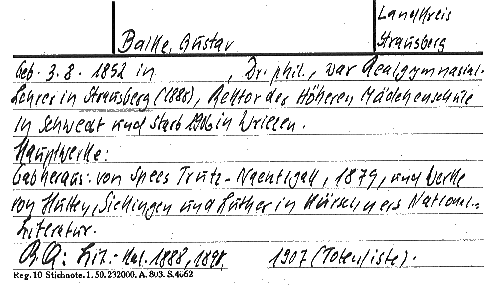 Landkreis
Balke, Gustav Strausberg
Geb. 3.8. 1852 in , Dr. phil., war Realgymnasial-
Lehrer in Strausberg (1888), Rektor der Höheren Mädchenschule
in Schwedt und starb 1906 in Wriezen.
Hauptwerke:
Gab heraus: von Spees Trutz-Nachtigall, 1879, und Werke
von Hutten, Sickingen und Luther in Kürschners National-
Literatur.
B.Q.: Lit.-Kal. 1888, 1898. 1907 (Totenliste).
Reg. 10 Stichnote. 1. 50. 232000. A. 803. S. 4662